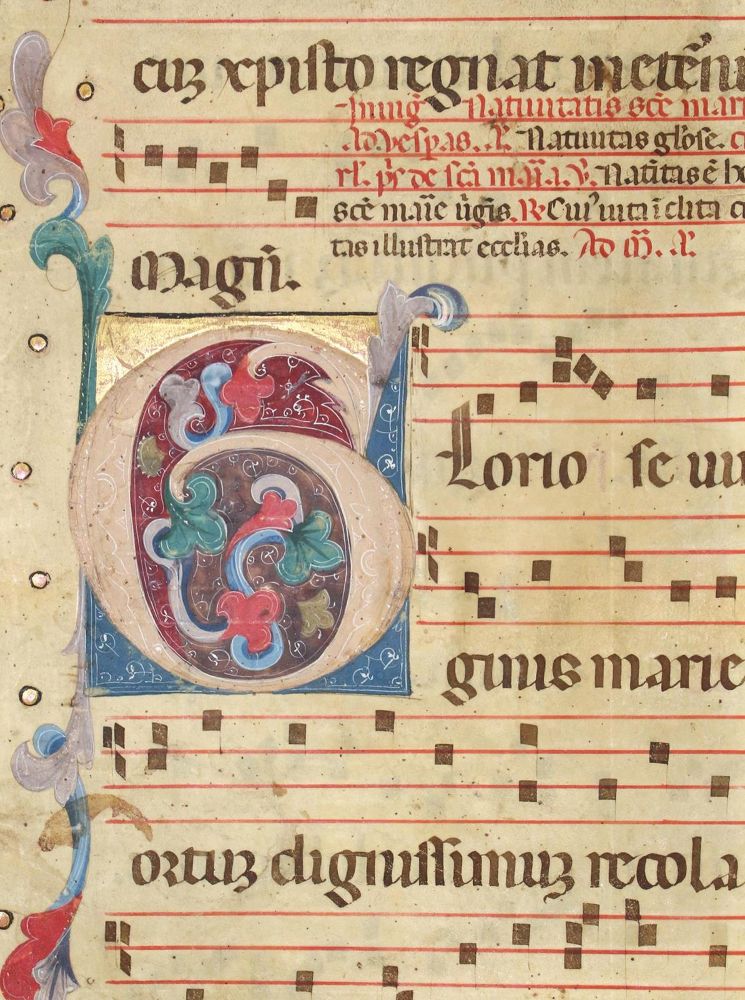 cuꝫ xpisto regnat in etẽnu
Jnuig̃ Natiuitatis sc̃e mari
Ad vesp̃as. A. Natiuitas gl̃ose.
rl. ps̃ de sc̃a maria. v̉. Natiũtas ẽ ho
sc̃e mar̃ie uir̃gis. R Cui' uita ĩclita c
tas illustrat ecclias. Ad m̃. A.
Magñ.
Glorio se uir
ginis marie
ortuꝫ dignissimuꝫ recola